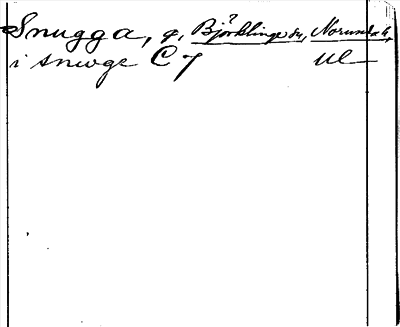 Snugga, g, Björklinge sn, Norunda h,
?
i snwge C 7 Ul